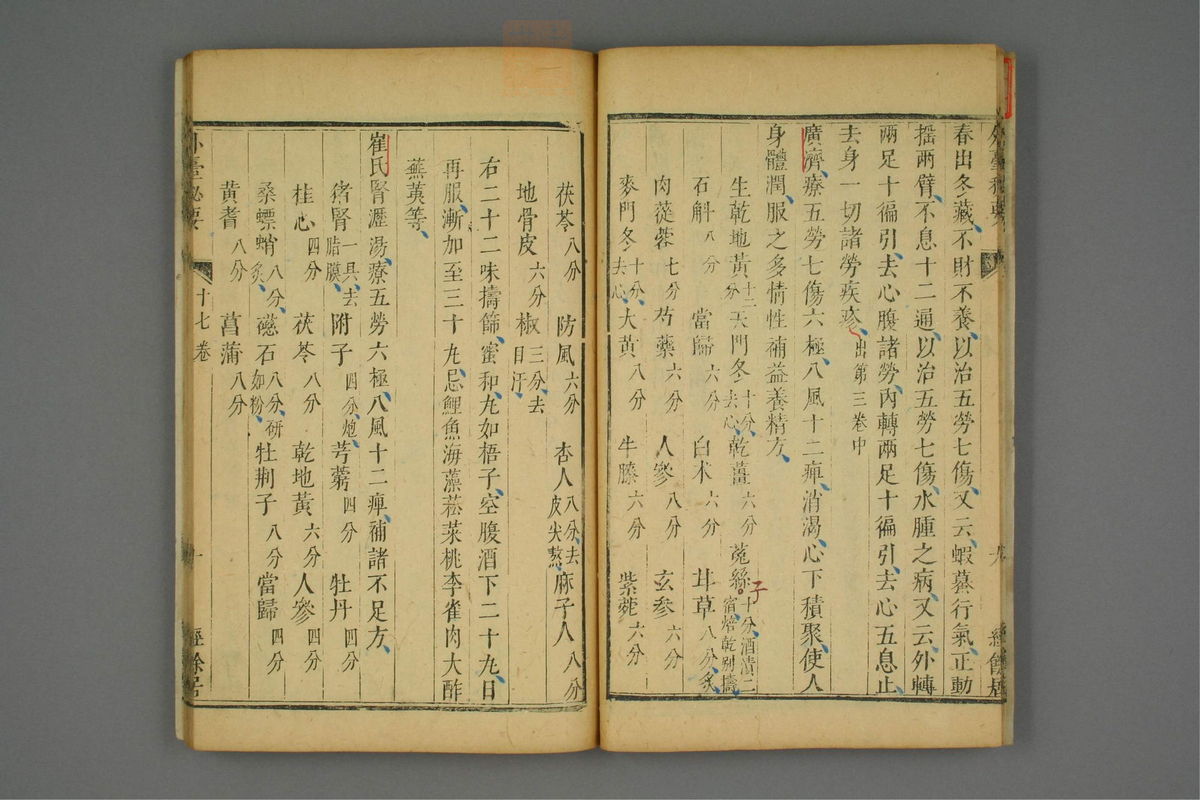 春出冬藏不財不養以治五勞七傷又云蝦蟇行氣正動
搖兩臂不息十二通以治五勞七傷水腫之病又云外轉
兩足十徧引去心腹諸勞內轉兩足十徧引去心五息止
去身一切諸勞疾疹出第三卷中
廣濟療五勞七傷六極八風十二痺消渴心下積聚使人
身體潤服之多情性補益養精方
生乾地黃十二分 天門冬十分去心 乾薑六分 菟絲子十分酒漬二宿焙乾別擣
石斛八分 當歸六分 白朮六分 甘草八分炙
肉蓯蓉七分 芍藥六分 人參八分 玄參六分
麥門冬十分去心 大黃八分 牛膝六分 紫菀六分
茯苓八分 防風六分 杏人八分去皮尖熬 麻子人八分
地骨皮六分 椒三分去目汗
右二十二味擣篩蜜和丸如梧子空腹酒下二十九日
再服漸加至三十丸忌鯉魚海藻菘菜桃李雀肉大酢
蕪荑等
崔氏腎瀝湯療五勞六極八風十二痺補諸不足方
猪腎一具去脂膜 附子四分炮 芎藭四分 牡丹四分
桂心四分 茯苓八分 乾地黃六分 人參四分
桑螵蛸八分炙 磁石八分研如粉 牡荆子八分 當歸四分
黃耆八分 菖蒲八分
外臺秘要 十七卷 十 經餘居